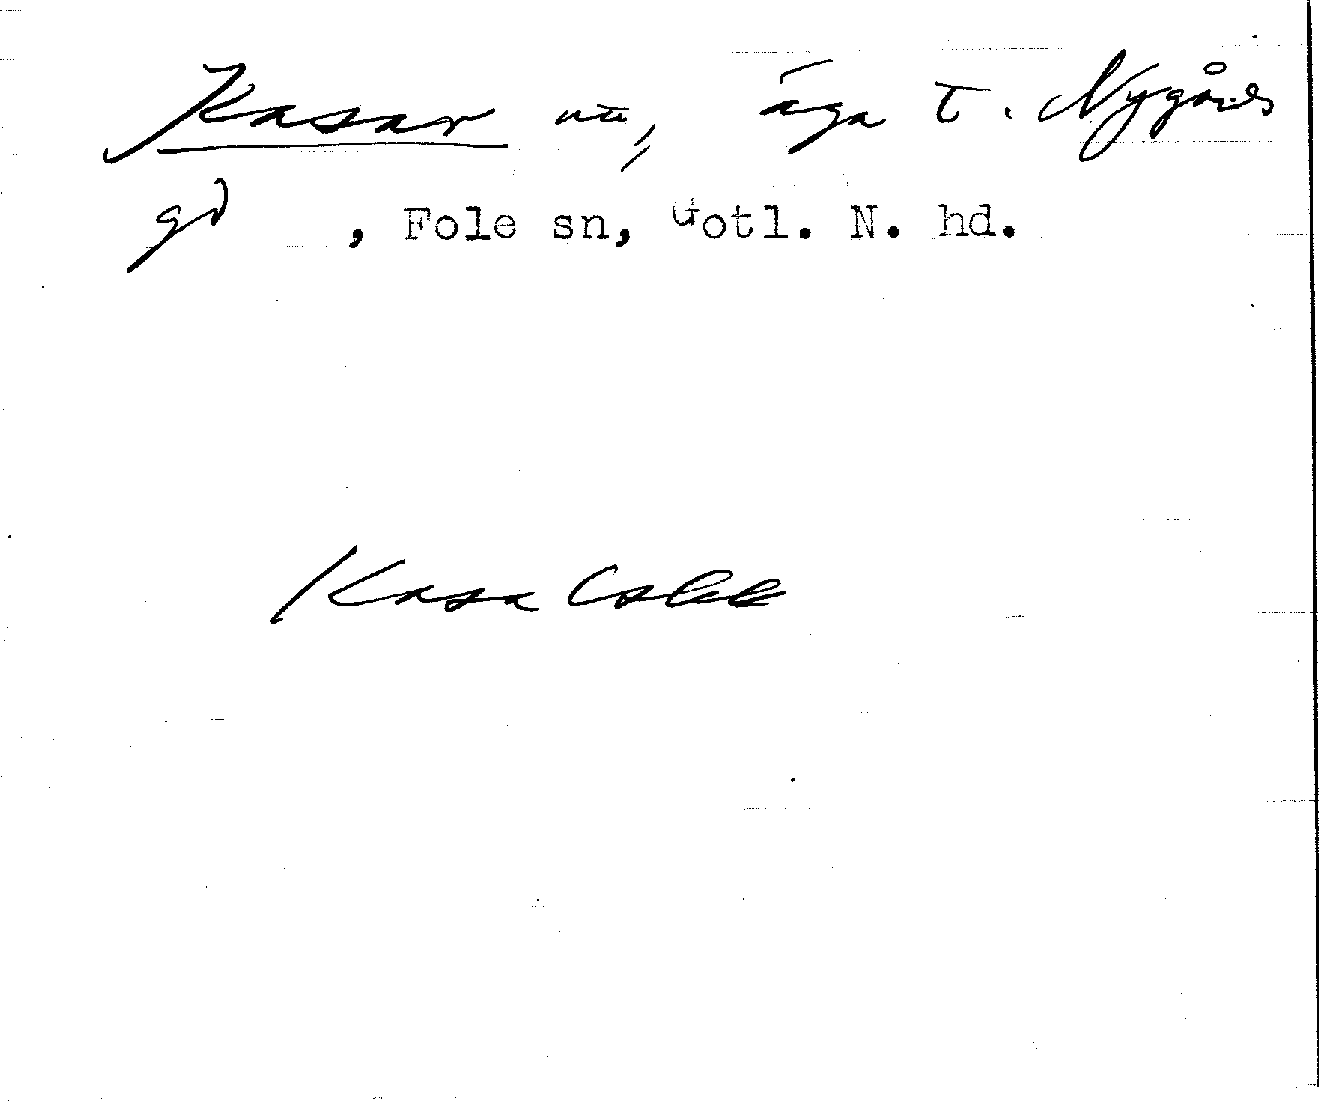 Kasar nu, äga t. Nygårds
gd , Fole sn, Gotl. N. hd.
Kasa